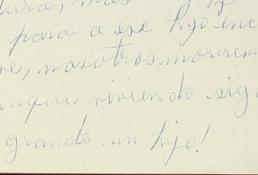 para a ese hijo enc
re, nosotros morirem
unque viviendo sig
grande un hijo!